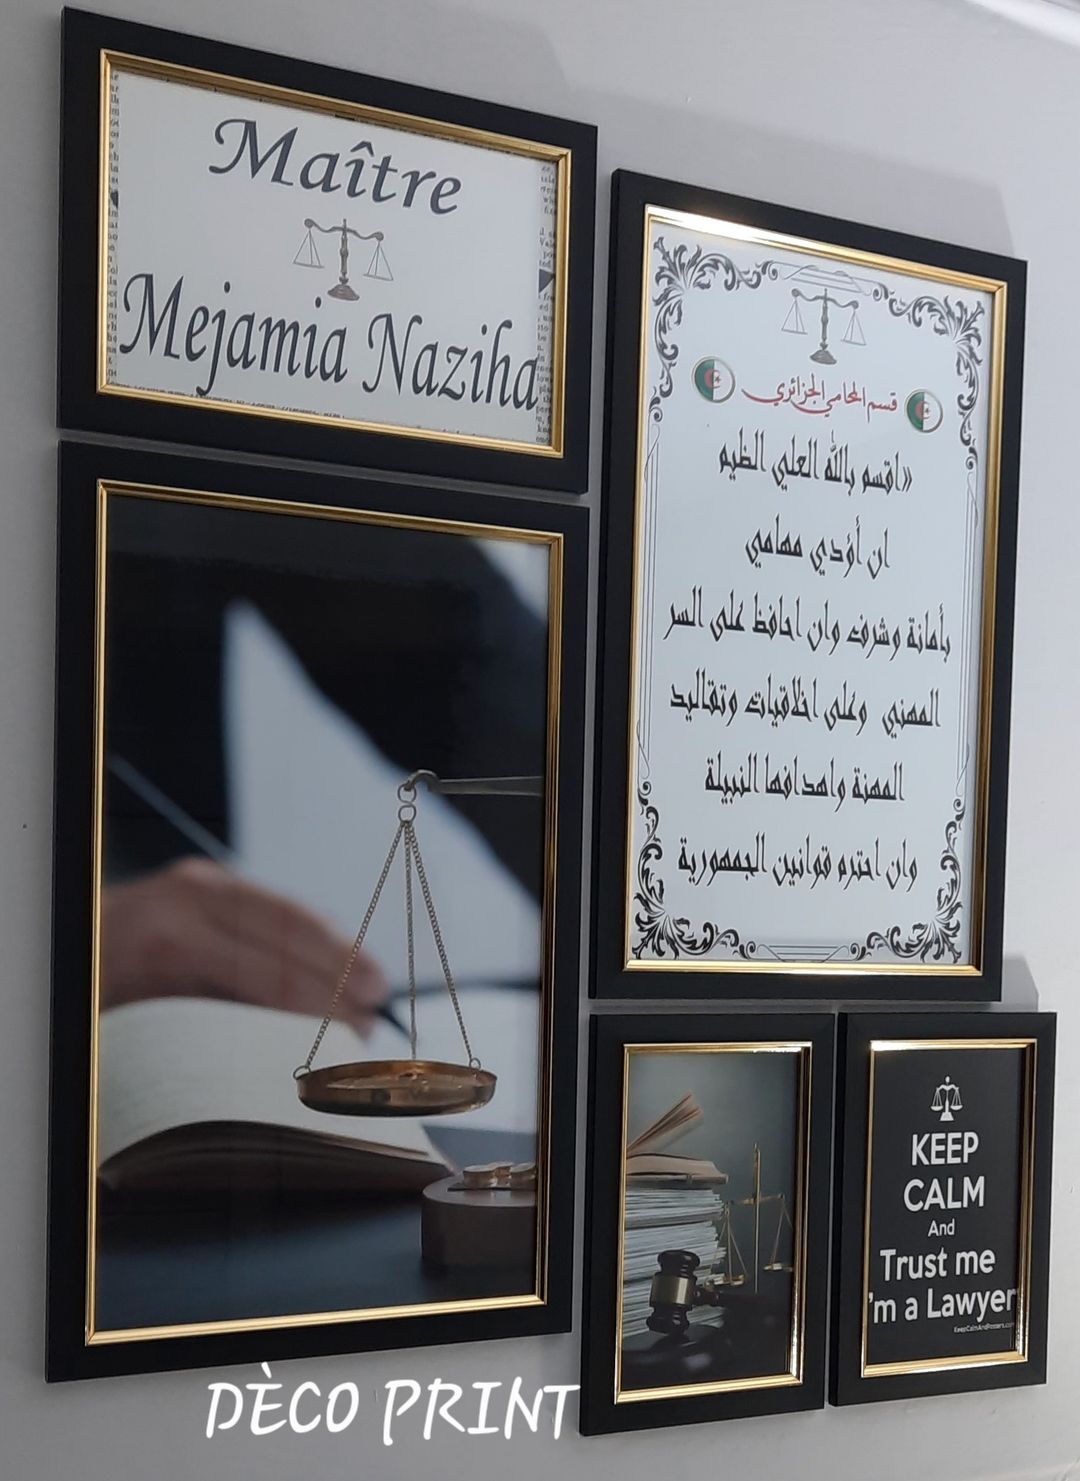 Maître
Mejamia Naziha
قسم المحامي الجزائري
«اقسم بالله العلي الظيم
ان أؤدي مهامي
بأمانة وشرف وان احافظ على السر
المهني وعلى اخلاقيات وتقاليد
المهنة واهدافها النبيلة
وان احترم قوانين الجمهورية
KEEP
CALM
And
Trust me
I'm a Lawyer
KeepCalmAndPosters.com
DÈCO PRINT